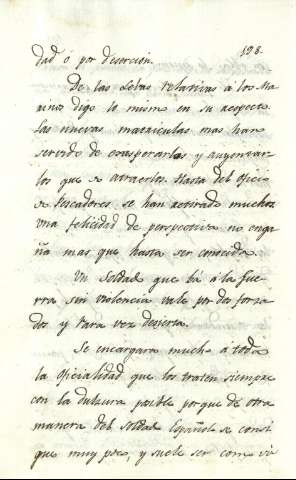 128.
dad ó por desercion.
De las Levas relativas á los Ma
rinos digo lo mismo en su respecto.
Las nuevas matriculas mas han
servido de exasperarlos y auyentar
los que de atraerlos. Hasta del oficio
de Pescadores se han retirado muchos.
Una felicidad de perspectiva no enga
ña mas que hasta ser conocida.
Un Soldado que bá á la Gue
rra sin violencia vale por dos forza
dos y rara vez deserta.
Se encargara mucho á toda
la oficialidad que los traten siempre
con la dulzura posible porque de otra
manera del Soldado Español se consi
gue muy poco, y suele ser como vi